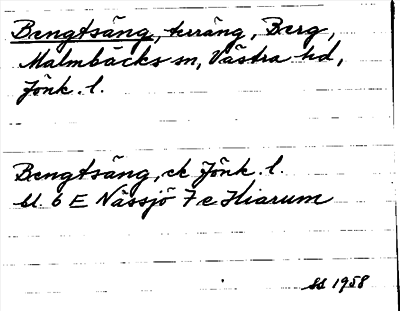 Bengtsäng, terräng, Berg,
Malmbäcks sn, Västra hd,
Jönk. l.
Bengtsäng, ek Jönk. l.
bl. 6 E Nässjö 7 e Hiarum
SS 1958